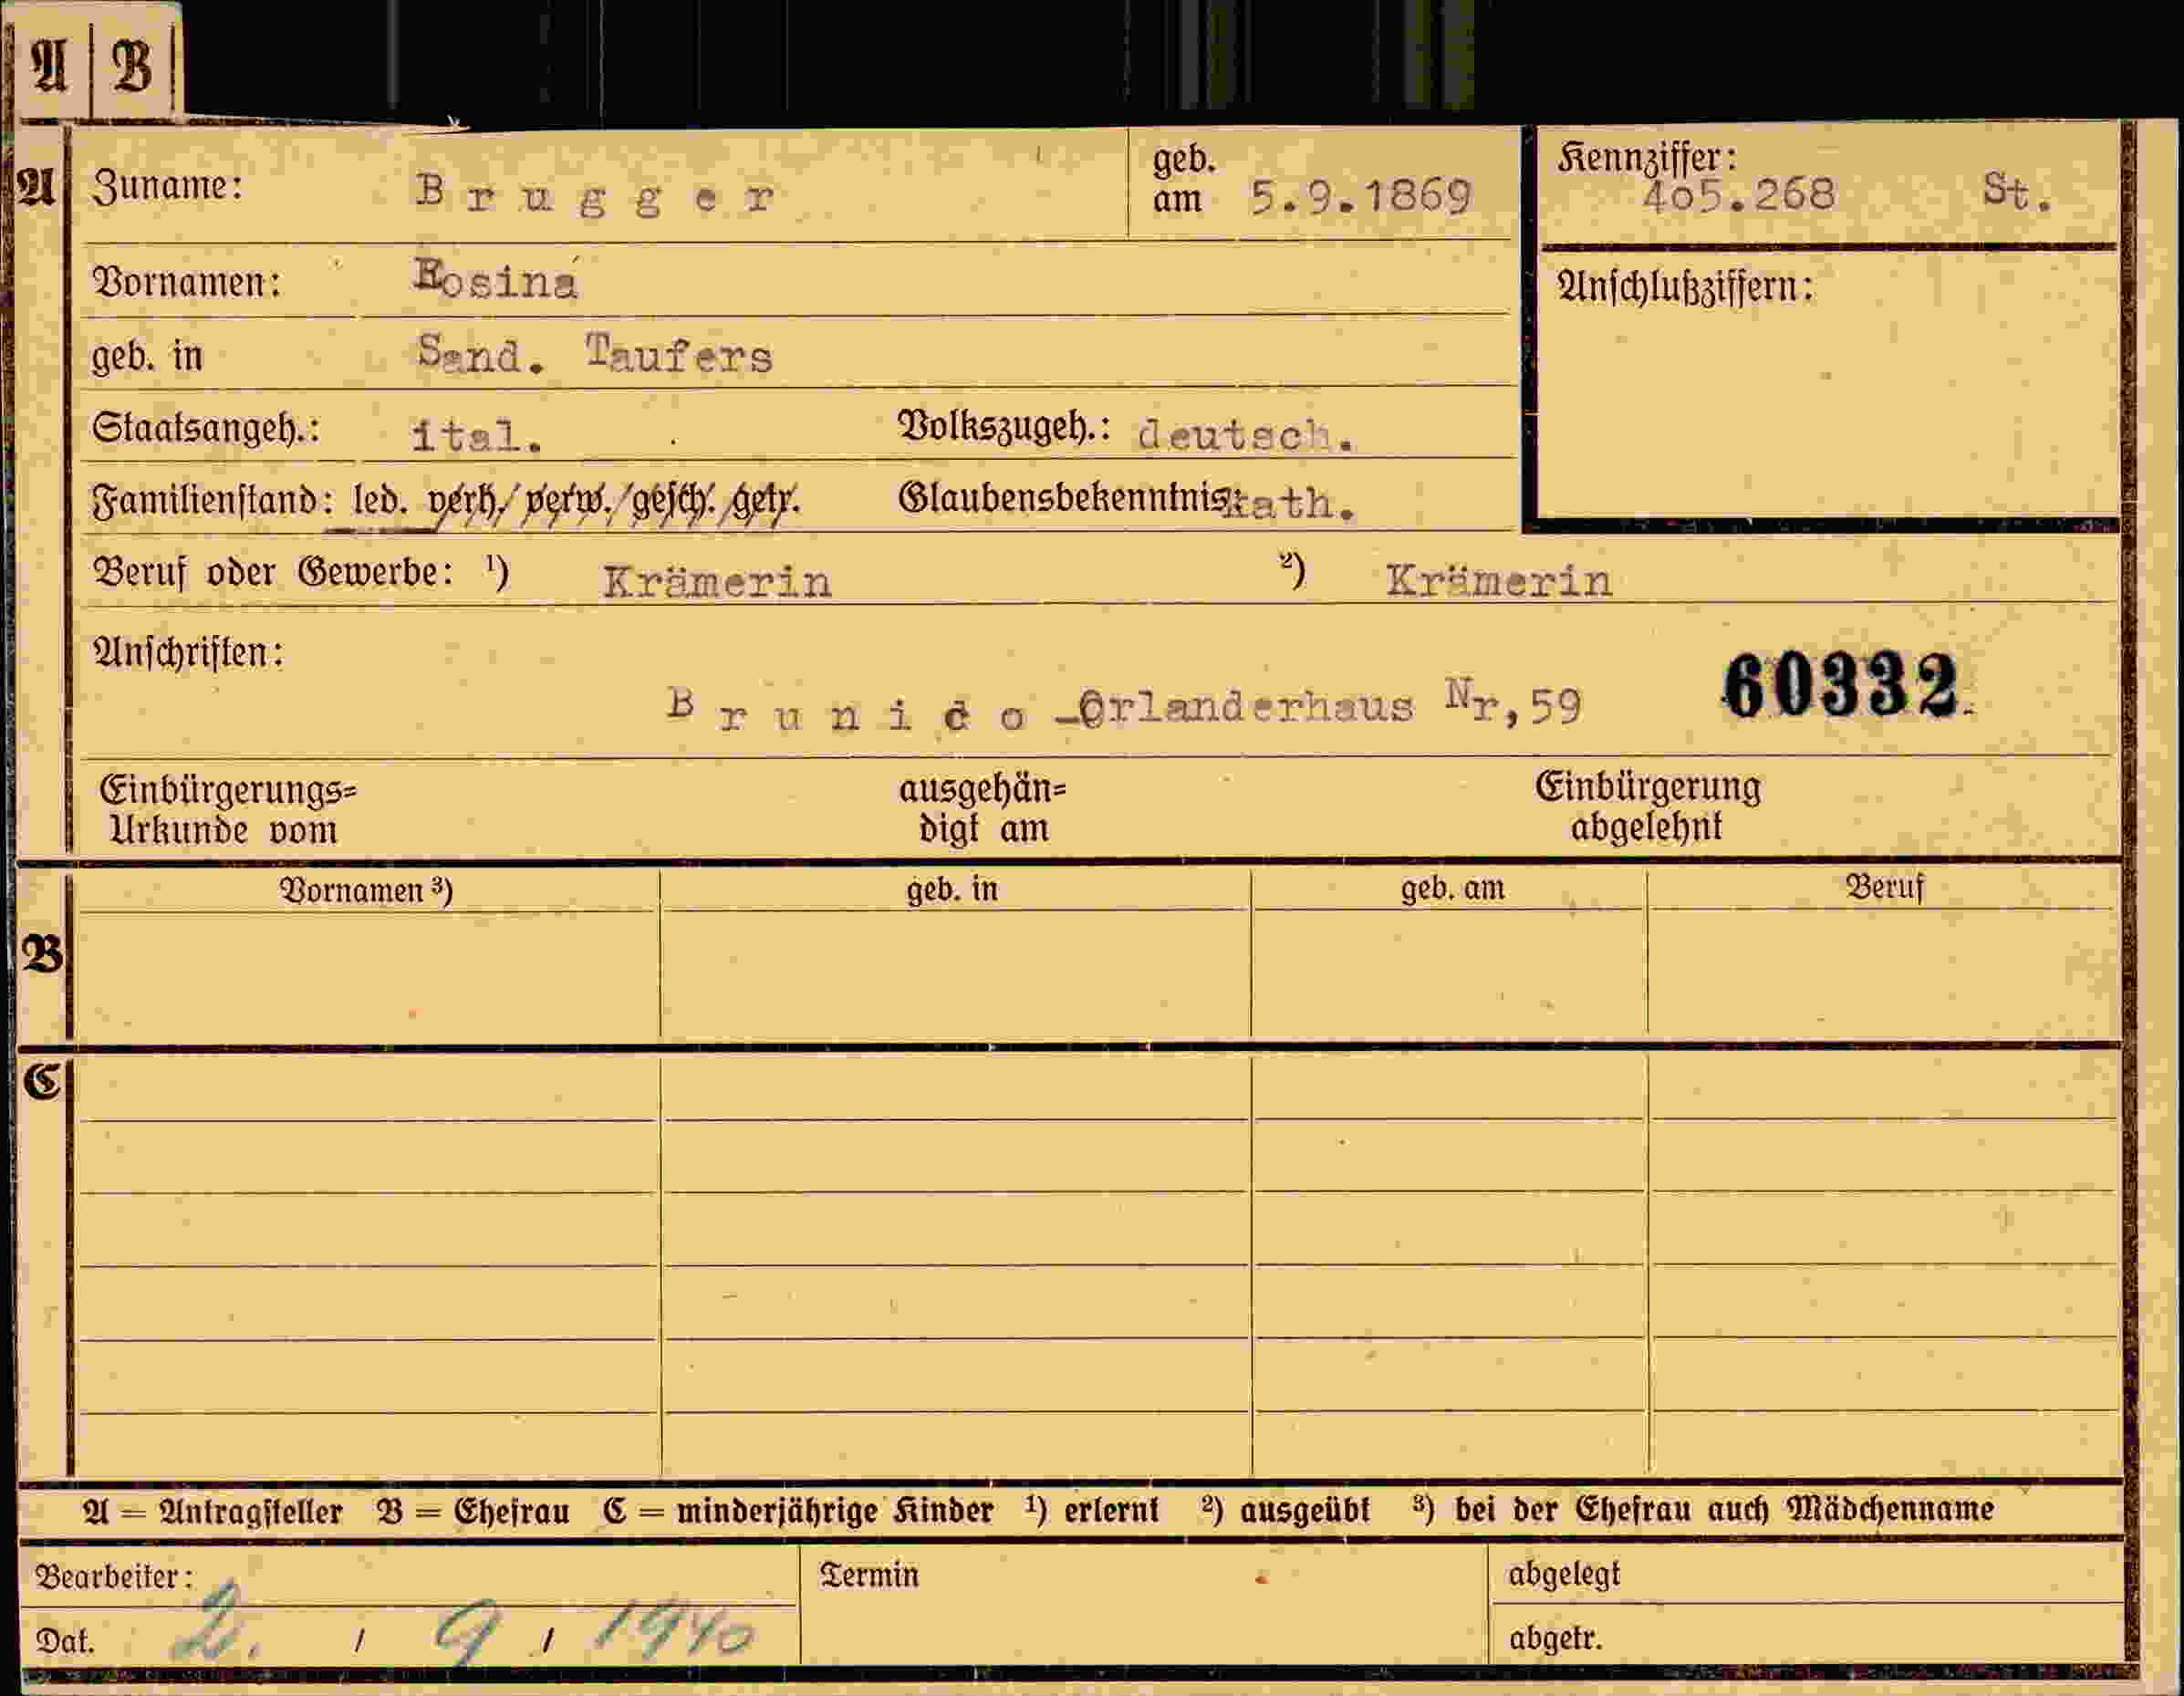 A B
A Zuname: Brugger geb. am 5.9.1869 Kennziffer: 4o5.268 St.
Vornamen: Rosina Anschlußziffern:
geb. in Sand. Taufers
Staatsangeh.: ital. Volkszugeh.: deutsch.
Familienstand: led. verh./verw./gesch./getr. Glaubensbekenntnis: kath.
Beruf oder Gewerbe: ¹) Krämerin ²) Krämerin
Anschriften:
Brunico-Orlanderhaus Nr,59 60332
Einbürgerungs= ausgehän= Einbürgerung
Urkunde vom digt am abgelehnt
Vornamen ³) geb. in geb. am Beruf
B
C
A = Antragsteller B = Ehefrau C = minderjährige Kinder ¹) erlernt ²) ausgeübt ³) bei der Ehefrau auch Mädchenname
Bearbeiter: Termin abgelegt
Dat. 2. / 9 / 1940 abgetr.